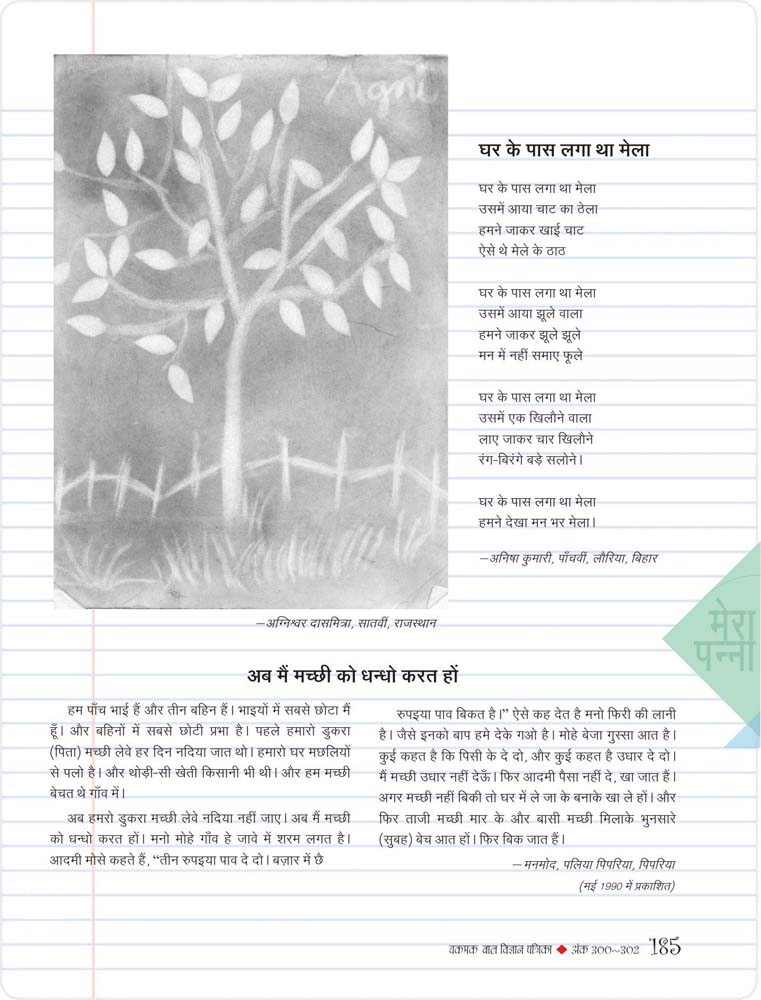 Agni
घर के पास लगा था मेला
घर के पास लगा था मेला
उसमें आया चाट का ठेला
हमने जाकर खाई चाट
ऐसे थे मेले के ठाठ
घर के पास लगा था मेला
उसमें आया झूले वाला
हमने जाकर झूले झूले
मन में नहीं समाए फूले
घर के पास लगा था मेला
उसमें एक खिलौने वाला
लाए जाकर चार खिलौने
रंग-बिरंगे बड़े सलोने।
घर के पास लगा था मेला
हमने देखा मन भर मेला।
—अनिषा कुमारी, पाँचवीं, लौरिया, बिहार
—अग्निश्वर दासमित्रा, सातवीं, राजस्थान
मेरा
पन्ना
अब मैं मच्छी को धन्धो करत हों
हम पाँच भाई हैं और तीन बहिन हैं। भाइयों में सबसे छोटा मैं
हूँ। और बहिनों में सबसे छोटी प्रभा है। पहले हमारो डुकरा
(पिता) मच्छी लेवे हर दिन नदिया जात थो। हमारो घर मछलियों
से पलो है। और थोड़ी-सी खेती किसानी भी थी। और हम मच्छी
बेचत थे गाँव में।
अब हमरो डुकरा मच्छी लेवे नदिया नहीं जाए। अब मैं मच्छी
को धन्धो करत हों। मनो मोहे गाँव हे जावे में शरम लगत है।
आदमी मोसे कहते हैं, “तीन रुपइया पाव दे दो। बज़ार में छै
रुपइया पाव बिकत है।” ऐसे कह देत है मनो फिरी की लानी
है। जैसे इनको बाप हमे देके गओ है। मोहे बेजा गुस्सा आत है।
कुई कहत है कि पिसी के दे दो, और कुई कहत है उधार दे दो।
मैं मच्छी उधार नहीं देऊँ। फिर आदमी पैसा नहीं दे, खा जात हैं।
अगर मच्छी नहीं बिकी तो घर में ले जा के बनाके खा ले हों। और
फिर ताजी मच्छी मार के और बासी मच्छी मिलाके भुनसारे
(सुबह) बेच आत हों। फिर बिक जात हैं।
—मनमोद, पलिया पिपरिया, पिपरिया
(मई 1990 में प्रकाशित)
चकमक बाल विज्ञान पत्रिका ◆ अंक 300~302 185